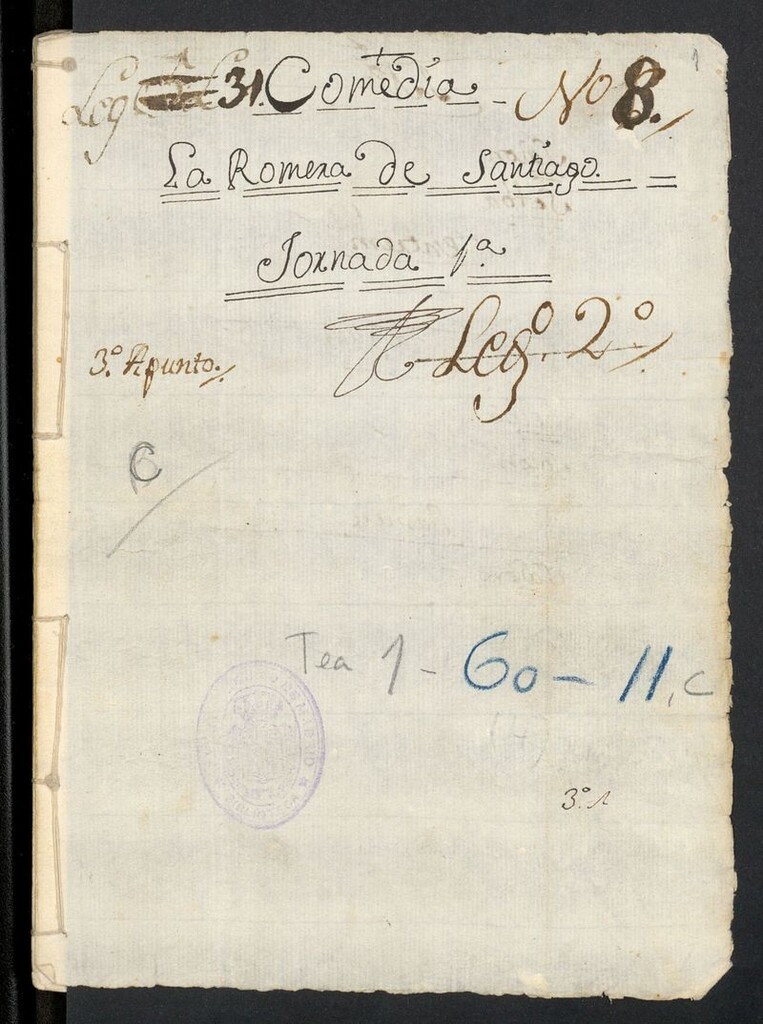 1
Leg 31. Comedia - No 8.
La Romera de Santiago.
Jornada 1.ª
Leg.º 2º
3.º Apunto.
C
Tea 1 - 60 - 11, C
BIBLIOTECA
3.º 1